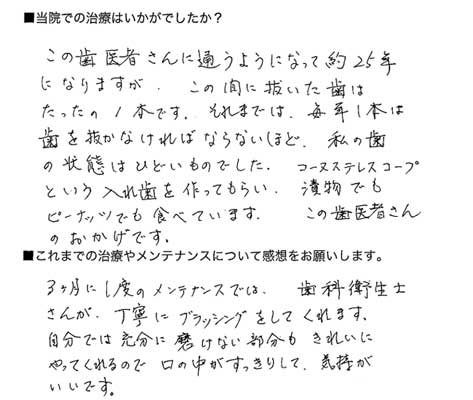 ■当院での治療はいかがでしたか？
この歯医者さんに通うようになって約25年
になりますが、この間に抜いた歯は
たったの1本です。それまでは、毎年1本は
歯を抜かなければならないほど、私の歯
の状態はひどいものでした。コーヌステレスコープ
という入れ歯を作ってもらい、漬物でも
ピーナッツでも食べています。この歯医者さん
のおかげです。
■これまでの治療やメンテナンスについて感想をお願いします。
3ヶ月に1度のメンテナンスでは、歯科衛生士
さんが、丁寧にブラッシングをしてくれます。
自分では充分に磨けない部分もきれいに
やってくれるので口の中がすっきりして、気持が
いいです。